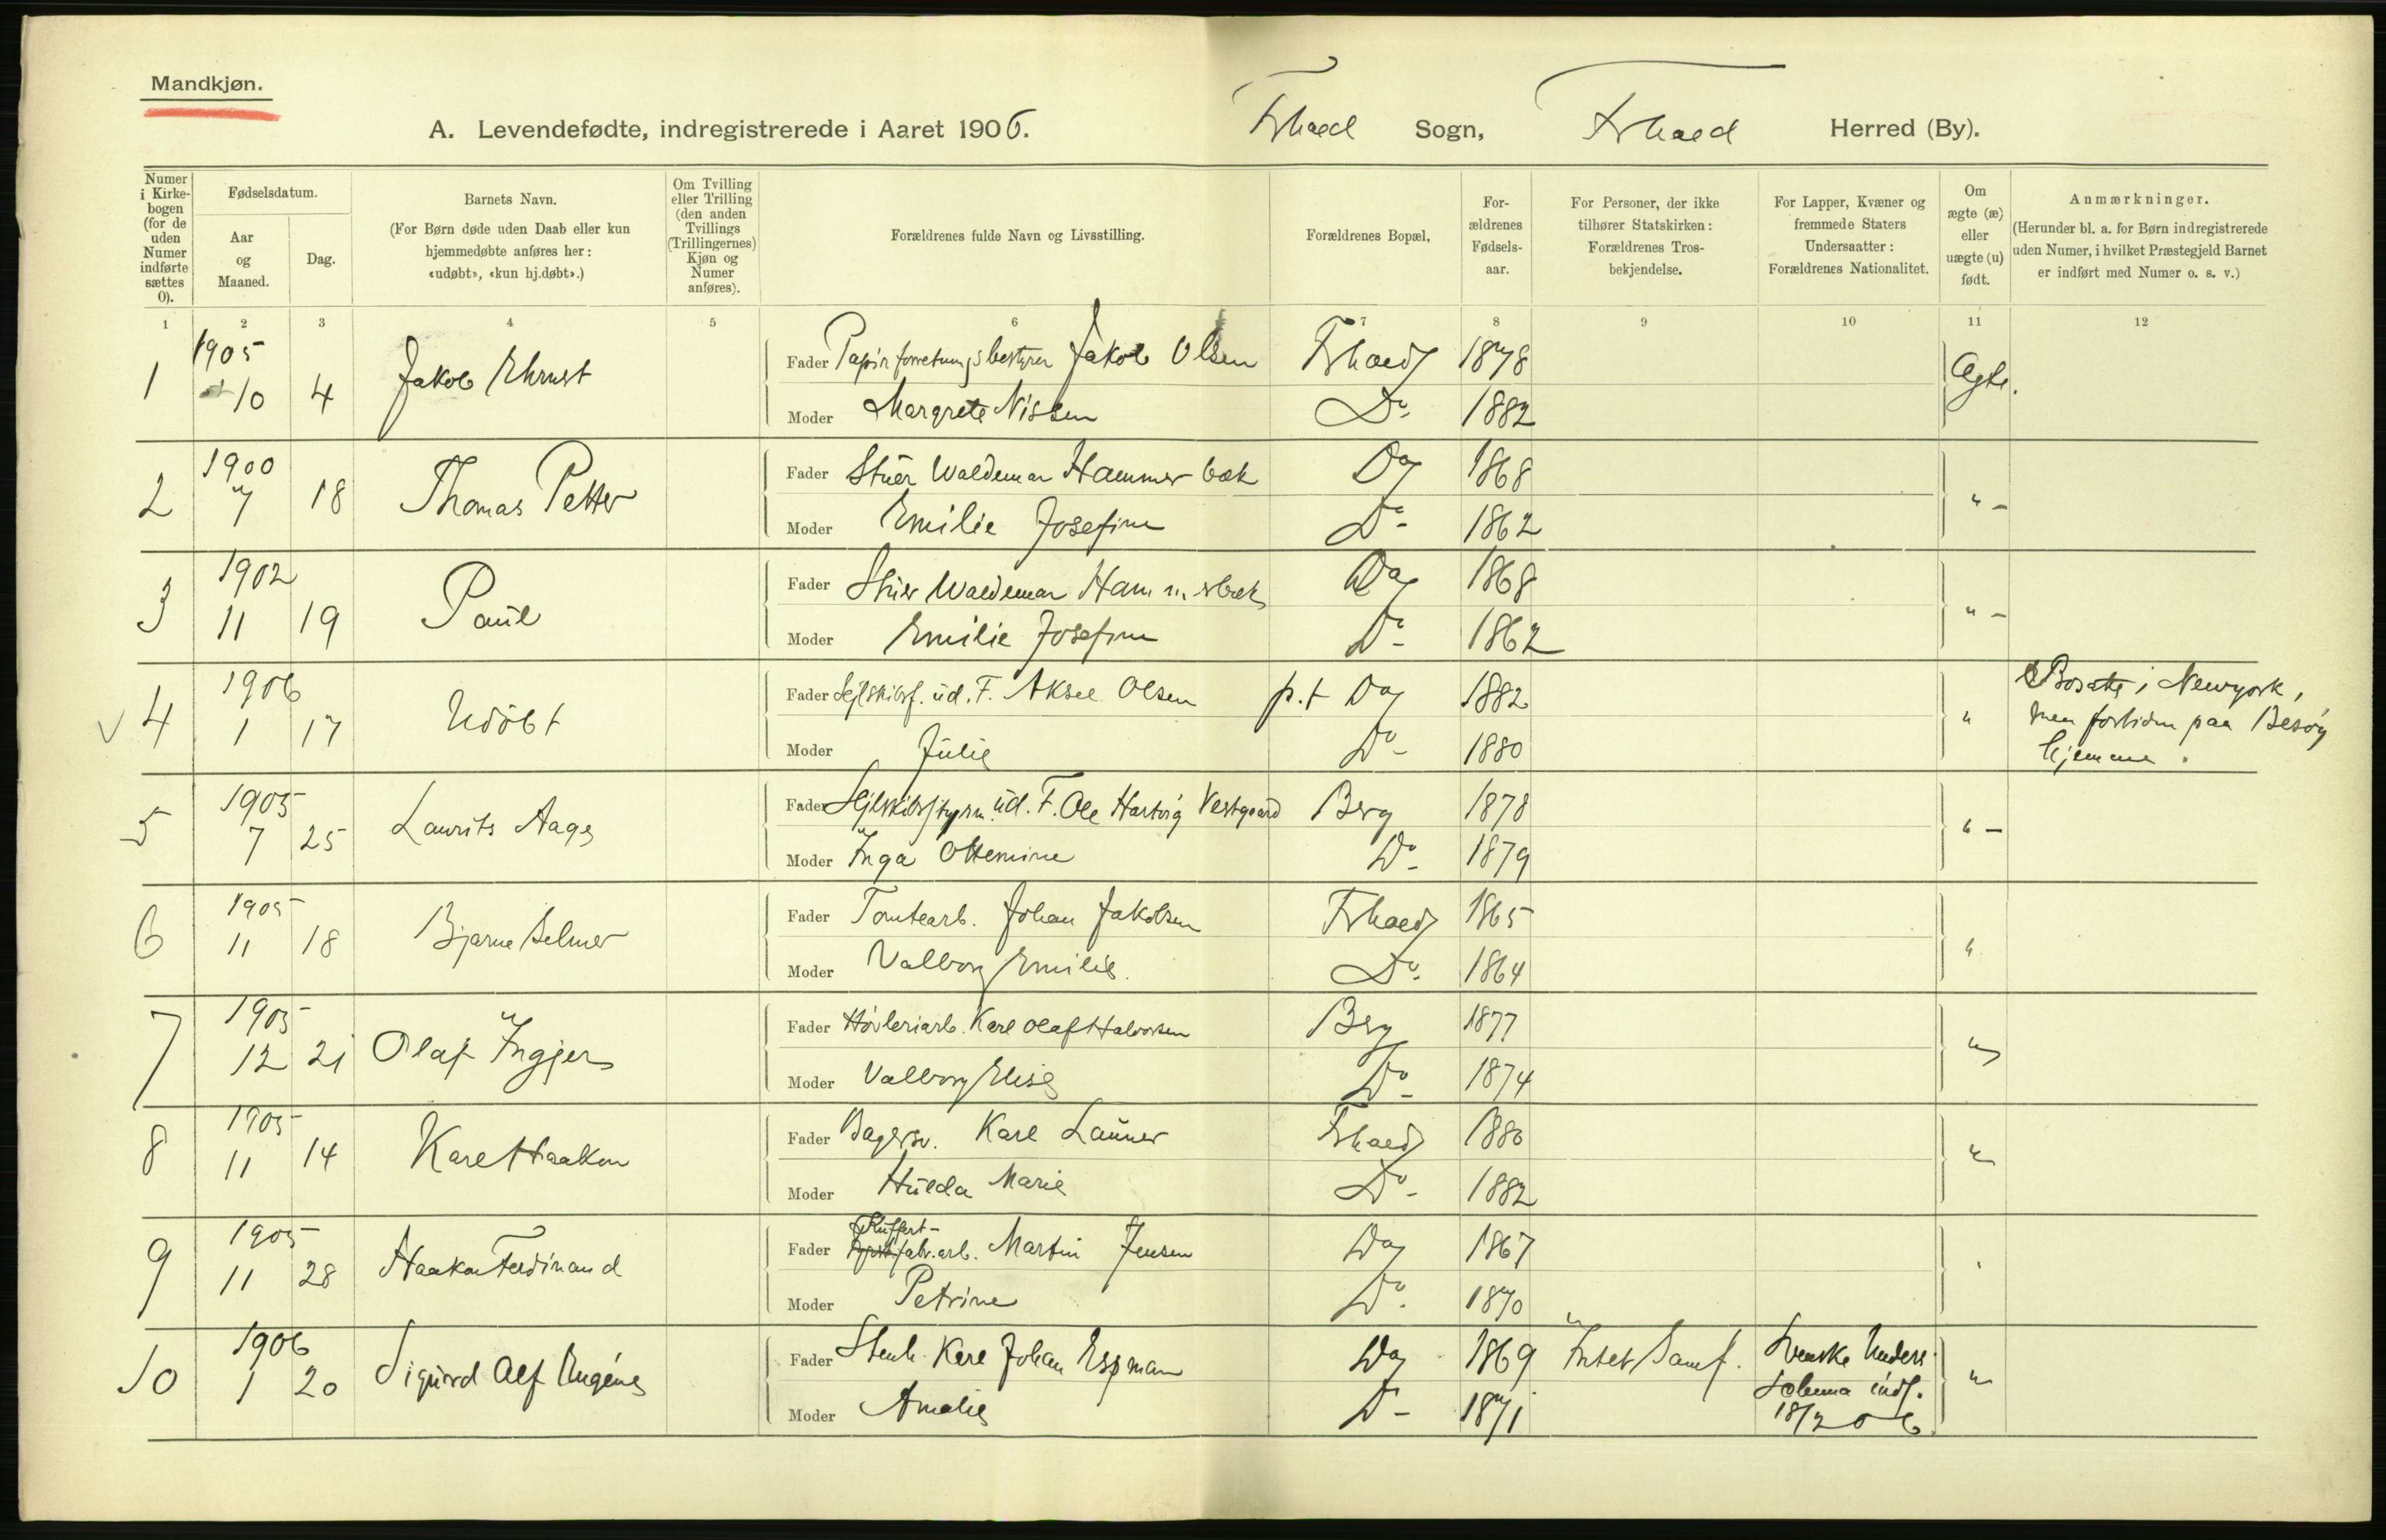 Mandkjøn.
A. Levendefødte, indregistrerede i Aaret 1906. Frhald Sogn, Frhald Herred (By).
Numer i Kirkebogen (for de uden Numer indførte sættes 0).
Fødselsdatum.
Aar og Maaned.
Dag.
Barnets Navn.
(For Børn døde uden Daab eller kun hjemmedøbte anføres her: «udøbt», «kun hj.døbt».)
Om Tvilling eller Trilling (den anden Tvillings (Trillingernes) Kjøn og Numer anføres).
Forældrenes fulde Navn og Livsstilling.
Forældrenes Bopæl,
Forældrenes Fødselsaar.
For Personer, der ikke tilhører Statskirken: Forældrenes Trosbekjendelse.
For Lapper, Kvæner og fremmede Staters Undersaatter: Forældrenes Nationalitet.
Om ægte (æ) eller uægte (u) født.
Anmærkninger.
(Herunder bl. a. for Børn indregistrerede uden Numer, i hvilket Præstegjeld Barnet er indført med Numer o. s. v.)
1 2 3 4 5 6 7 8 9 10 11 12
1 1905 10 4 Jakob Ehrnst Fader Papirforretningsbestyrer Jakob Olsen Frhald 1878 Ægte.
Moder Margrete Nissen Do 1882
2 1900 7 18 Thomas Petter Fader Stuer Waldemar Hammerbæk Do 1868 " -
Moder Emilie Josefine Do 1862
3 1902 11 19 Paul Fader Stuer Waldemar Hammerbæk Do 1868 " -
Moder Emilie Josefine Do 1862
4 1906 1 17 Udöbt Fader Sejlskibsf. ud. F. Aksel Olsen p.t Do 1882 " Bosatte i Newyork, men fortiden paa Besøg hjemme.
Moder Julie Do 1880
5 1905 7 25 Laurits Aage Fader Sejlskibsstyrm. ud. F. Ole Hartvig Vestgaard Berg 1878 " -
Moder Inga Ottemine Do 1879
6 1905 11 18 Bjarne Selmer Fader Tomtearb. Johan Jakobsen Frhald 1865 "
Moder Valborg Emilie. Do 1864
7 1905 12 21 Olaf Ingjer Fader Høvleriarb. Karl Olaf Halvorsen Berg 1877 "
Moder Valborg Elise Do 1874
8 1905 11 14 Karl Haakon Fader Bagersv. Karl Launer Frhald 1880 "
Moder Hulda Marie Do 1882
9 1905 11 28 Haakon Ferdinand Fader Kuffert-fabr.arb. Martin Jensen Do 1867 "
Moder Petrine Do 1870
10 1906 1 20 Sigurd Alf Eugène Fader Stenh. Karl Johan Espman Do 1869 Intet Samf. Svenske Unders. Schema indf. 18/2 06 "
Moder Amalie Do 1871